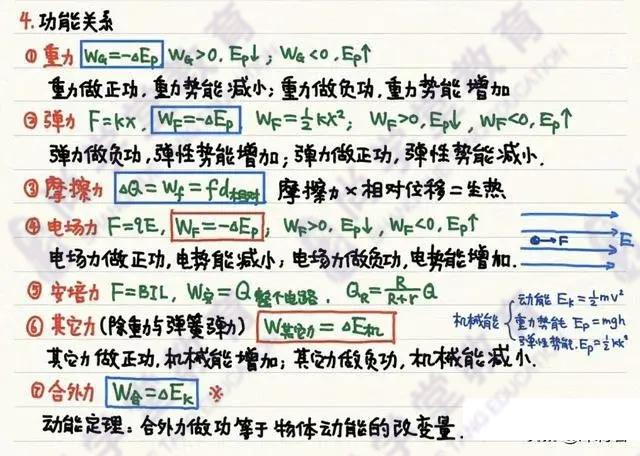 4. 功能关系
① 重力 W_G=-ΔEp W_G>0, Ep↓; W_G<0, Ep↑
重力做正功,重力势能减小;重力做负功,重力势能增加
② 弹力 F=kx, W_F=-ΔEp, W_F=½kx²; W_F>0, Ep↓, W_F<0, Ep↑
弹力做负功,弹性势能增加;弹力做正功,弹性势能减小.
③ 摩擦力 ΔQ=W_f=fd相对 摩擦力×相对位移=生热
④ 电场力 F=qE, W_F=-ΔEp; W_F>0, Ep↓, W_F<0, Ep↑
⊕→F E
电场力做正功,电势能减小;电场力做负功,电势能增加.
⑤ 安培力 F=BIL, W安=Q整个电路. Q_R=R/(R+r)Q
机械能
动能 E_K=½mv²
重力势能 Ep=mgh
弹性势能.Ep=½kx²
⑥ 其它力(除重力与弹簧弹力) W其它力=ΔE机
其它力做正功,机械能增加;其它力做负功,机械能减小.
⑦ 合外力 W合=ΔE_K ※
动能定理:合外力做功等于物体动能的改变量.